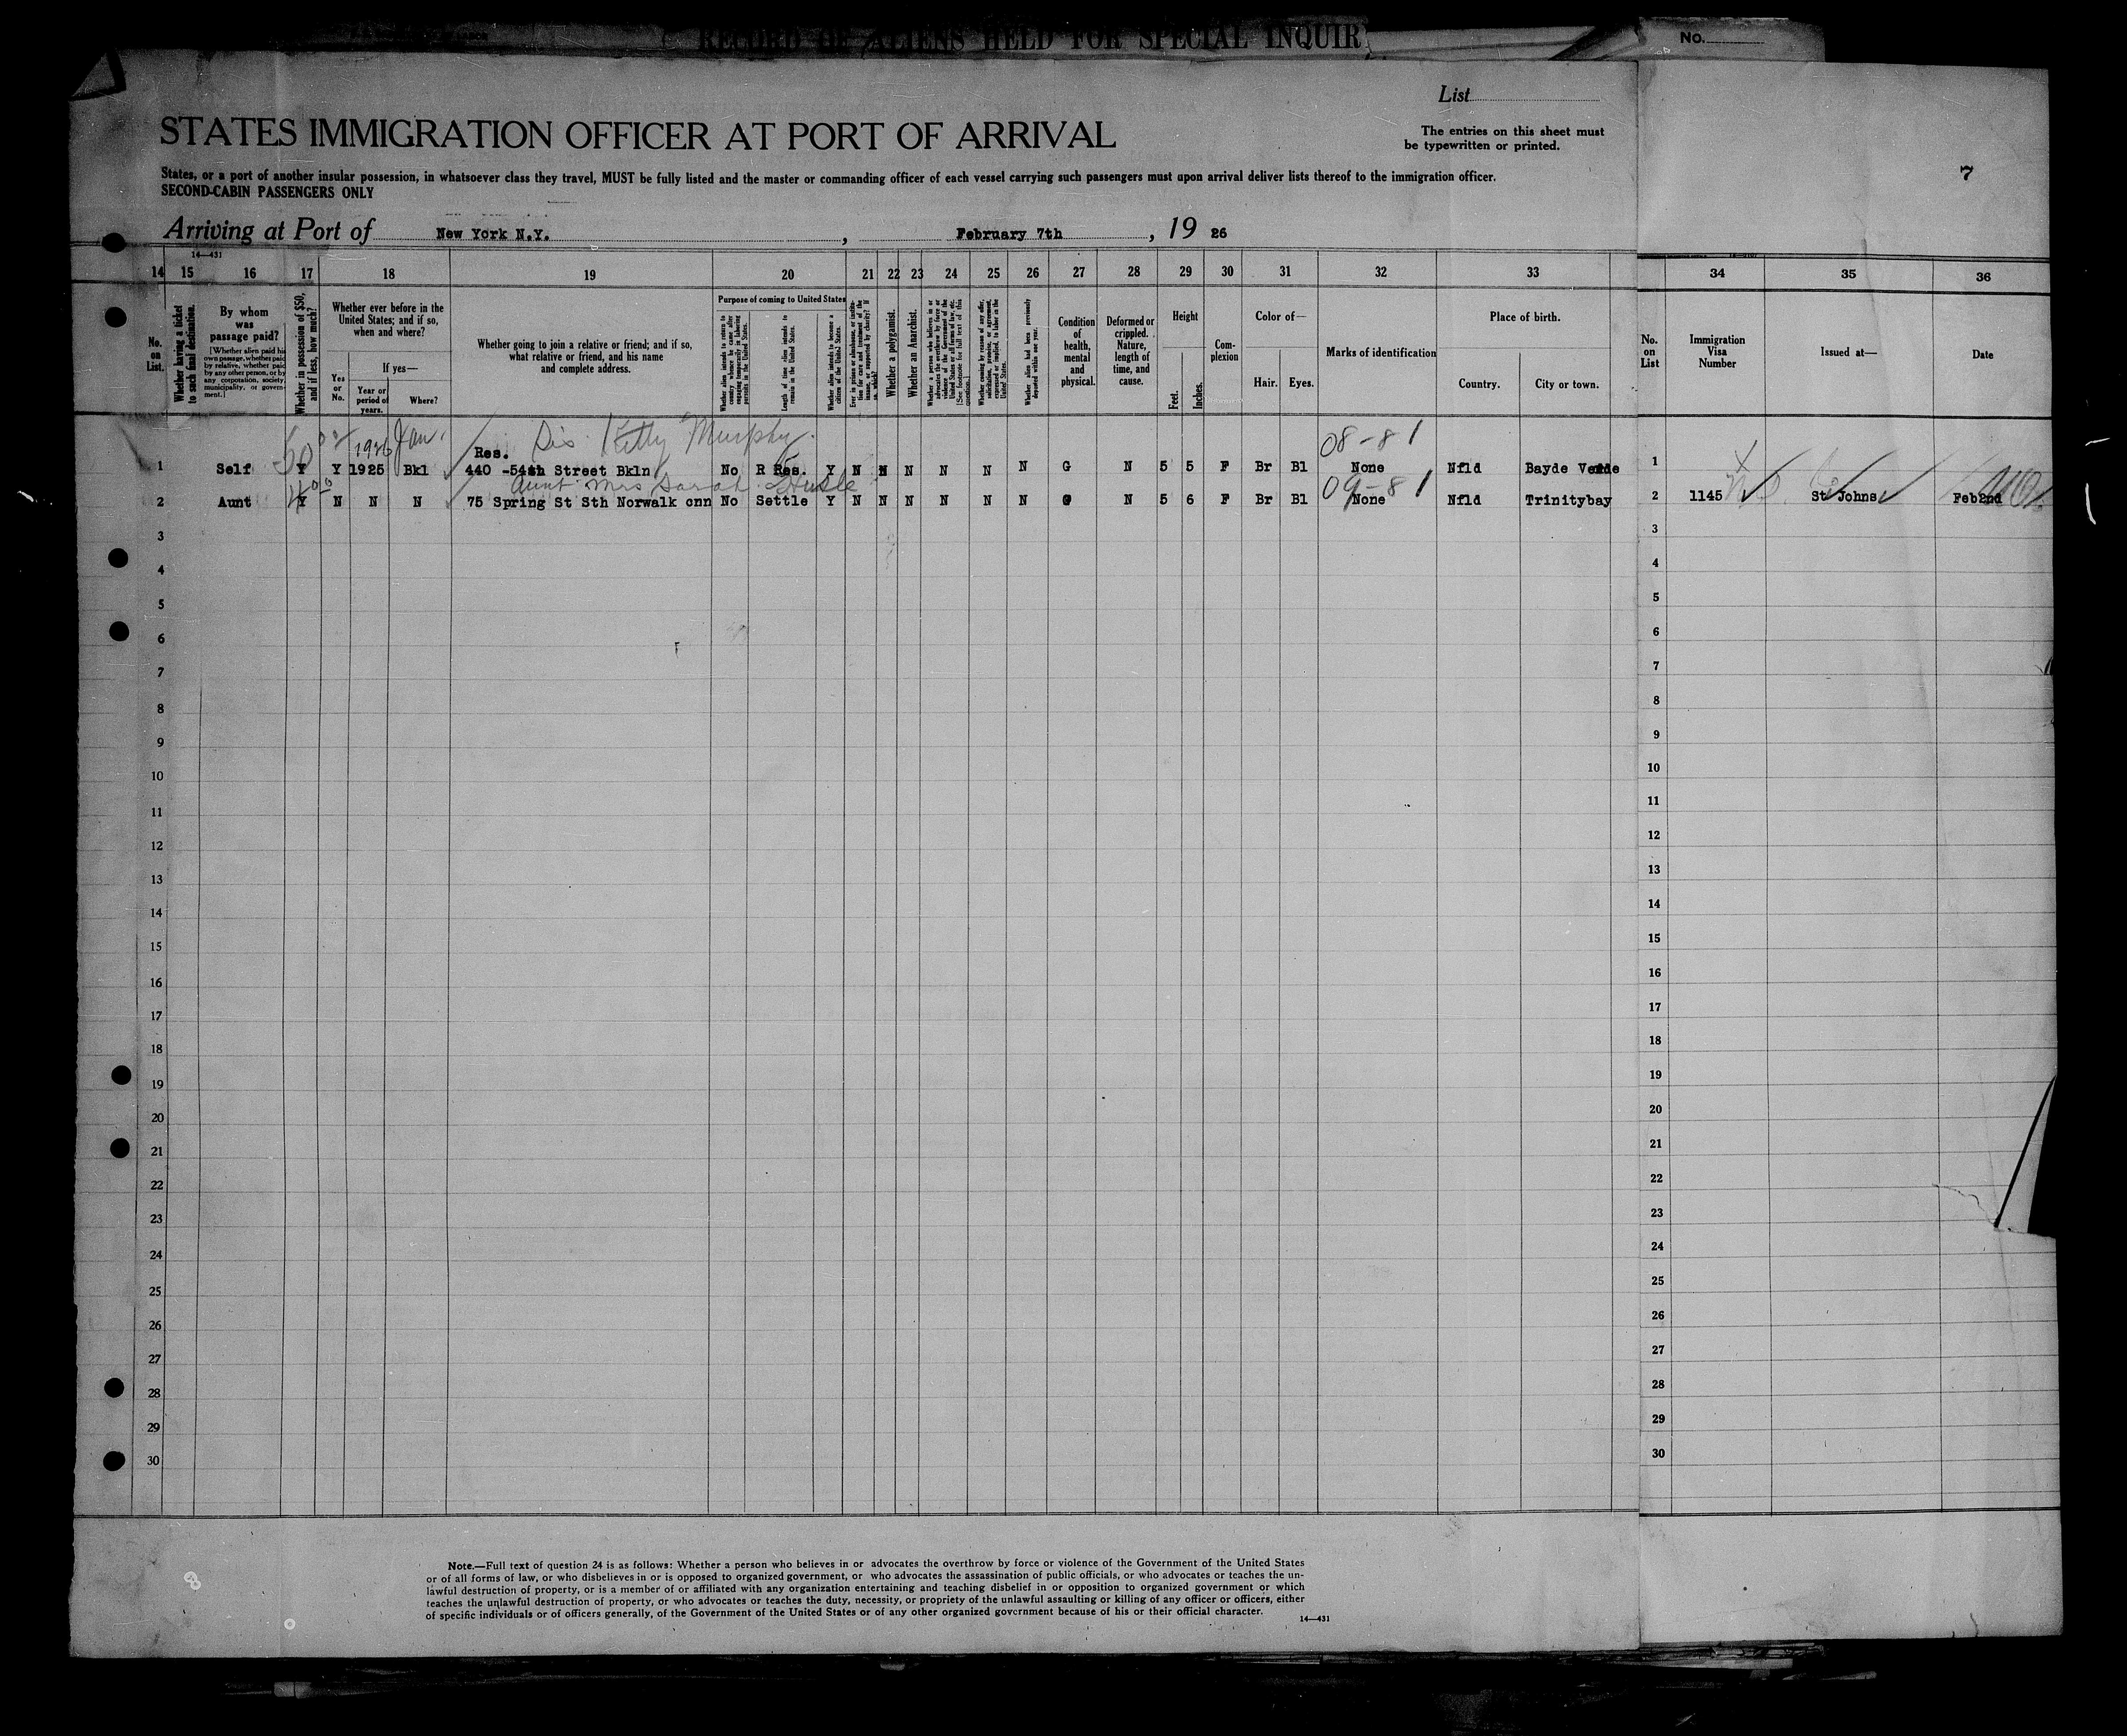 RECORD OF ALIENS HELD FOR SPECIAL INQUIR
No.
List
STATES IMMIGRATION OFFICER AT PORT OF ARRIVAL
The entries on this sheet must
be typewritten or printed.
7
States, or a port of another insular possession, in whatsoever class they travel, MUST be fully listed and the master or commanding officer of each vessel carrying such passengers must upon arrival deliver lists thereof to the immigration officer.
SECOND-CABIN PASSENGERS ONLY
Arriving at Port of New York N.Y. , February 7th , 19 26
14—431
14 15 16 17 18 19 20 21 22 23 24 25 26 27 28 29 30 31 32 33 34 35 36
No. on List.
Whether having a ticket to such final destination.
By whom was passage paid?
[Whether alien paid his own passage, whether paid by relative, whether paid by any other person, or by any corporation, society, municipality, or government.]
Whether in possession of $50, and if less, how much?
Whether ever before in the United States; and if so, when and where?
Yes or No.
If yes—
Year or period of years.
Where?
Whether going to join a relative or friend; and if so, what relative or friend, and his name and complete address.
Purpose of coming to United States
Whether alien intends to return to country whence he came after engaging temporarily in laboring pursuits in the United States.
Length of time alien intends to remain in the United States.
Whether alien intends to become a citizen of the United States.
Whether a polygamist.
Whether an Anarchist.
Whether alien had been previously deported within one year.
Condition of health, mental and physical.
Deformed or crippled. Nature, length of time, and cause.
Height
Feet.
Inches.
Complexion
Color of—
Hair.
Eyes.
Marks of identification
Place of birth.
Country.
City or town.
No. on List
Immigration Visa Number
Issued at—
Date
50 00 1926 Jan. Sis. Kitty Murphy. 08-81
Res.
1 Self Y Y 1925 Bkl 440 -54th Street Bkln No R Res. Y N N N N N N G N 5 5 F Br Bl None Nfld Bayde Verde 1
Aunt Mrs Sarah 09-81
2 Aunt Y N N N 75 Spring St Sth Norwalk cnn No Settle Y N N N N N N G N 5 6 F Br Bl None Nfld Trinitybay 2 1145 St Johns Feb2nd
3 3
4 4
5 5
6 6
7 7
8 8
9 9
10 10
11 11
12 12
13 13
14 14
15 15
16 16
17 17
18 18
19 19
20 20
21 21
22 22
23 23
24 24
25 25
26 26
27 27
28 28
29 29
30 30
Note.—Full text of question 24 is as follows: Whether a person who believes in or advocates the overthrow by force or violence of the Government of the United States
or of all forms of law, or who disbelieves in or is opposed to organized government, or who advocates the assassination of public officials, or who advocates or teaches the un-
lawful destruction of property, or is a member of or affiliated with any organization entertaining and teaching disbelief in or opposition to organized government or which
teaches the unlawful destruction of property, or who advocates or teaches the duty, necessity, or propriety of the unlawful assaulting or killing of any officer or officers, either
of specific individuals or of officers generally, of the Government of the United States or of any other organized government because of his or their official character.
14—431